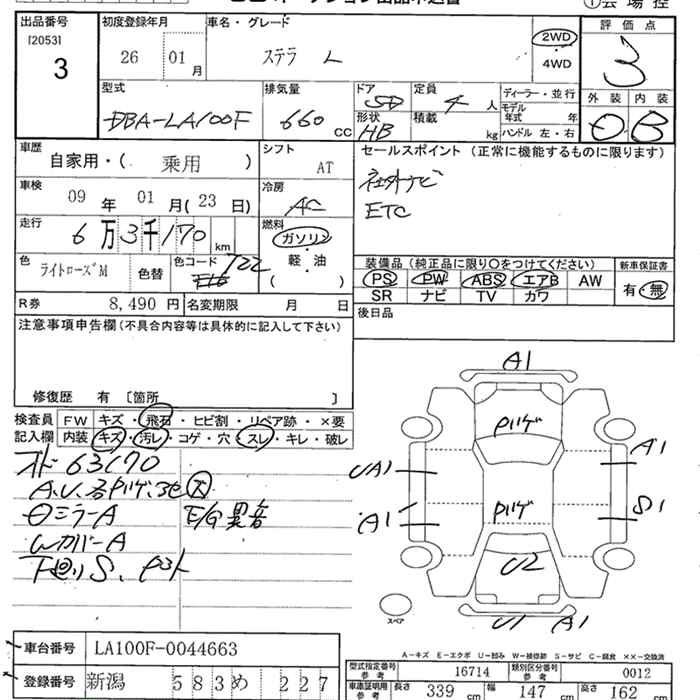 出品番号
[2053]
3
初度登録年月
26 01 月
車名・グレード
ステラ L
2WD
4WD
評価点
3
外装 内装
B
型式
DBA-LA100F
排気量
660 CC
ドア
5D
形状
HB
定員
4 人
積載
kg
ディーラー・並行
モデル年式 年
ハンドル 左・右
車歴
自家用・( 乗用 )
シフト
AT
車検
09 年 01 月(23 日)
冷房
AC
走行
6万3千170 km
燃料
ガソリン
軽・油
( )
色
ライトローズM
色替
色コード
T22
R券 8,490 円
名変期限 月 日
セールスポイント (正常に機能するものに限ります)
社外ナビ
ETC
装備品(純正品に限り○をつけてください)
PS PW ABS エアB AW
SR ナビ TV カワ
新車保証書
有・無
後日品
注意事項申告欄(不具合内容等は具体的に記入して下さい)
修復歴 有 [箇所 ]
検査員 FW キズ・飛石・ヒビ割・リペア跡・×要
記入欄 内装 キズ・汚レ・コゲ・穴・スレ・キレ・破レ
63170
A.U.
ミラーA
E/G異音
WカバーA
下廻りS
A1
UA1
A1
A1
S1
U2
U1 A1
スペア
A-キズ E-エクボ U-凹み W-補修跡 S-サビ C-腐食 ××-交換済
車台番号 LA100F-0044663
登録番号 新潟 583 め 227
型式指定番号 参考 16714
類別区分番号 参考 0012
車検証明用 参考 長さ 339 cm 幅 147 cm 高さ 162 cm